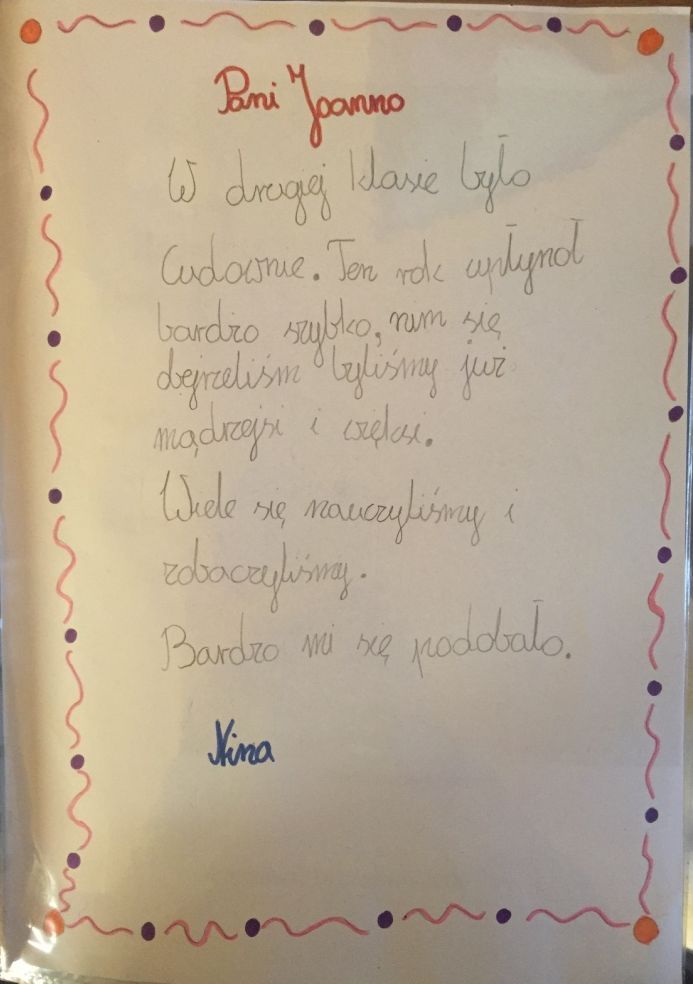 Pani Joanno
W drugiej klasie było
Cudownie. Ten rok wpłynoł
bardzo szybko, nim się
obejrzeliśm byliśmy już
mądrzejsi i więksi.
Wiele się nauczyliśmy i
zobaczyliśmy.
Bardzo mi się podobało.
Nina